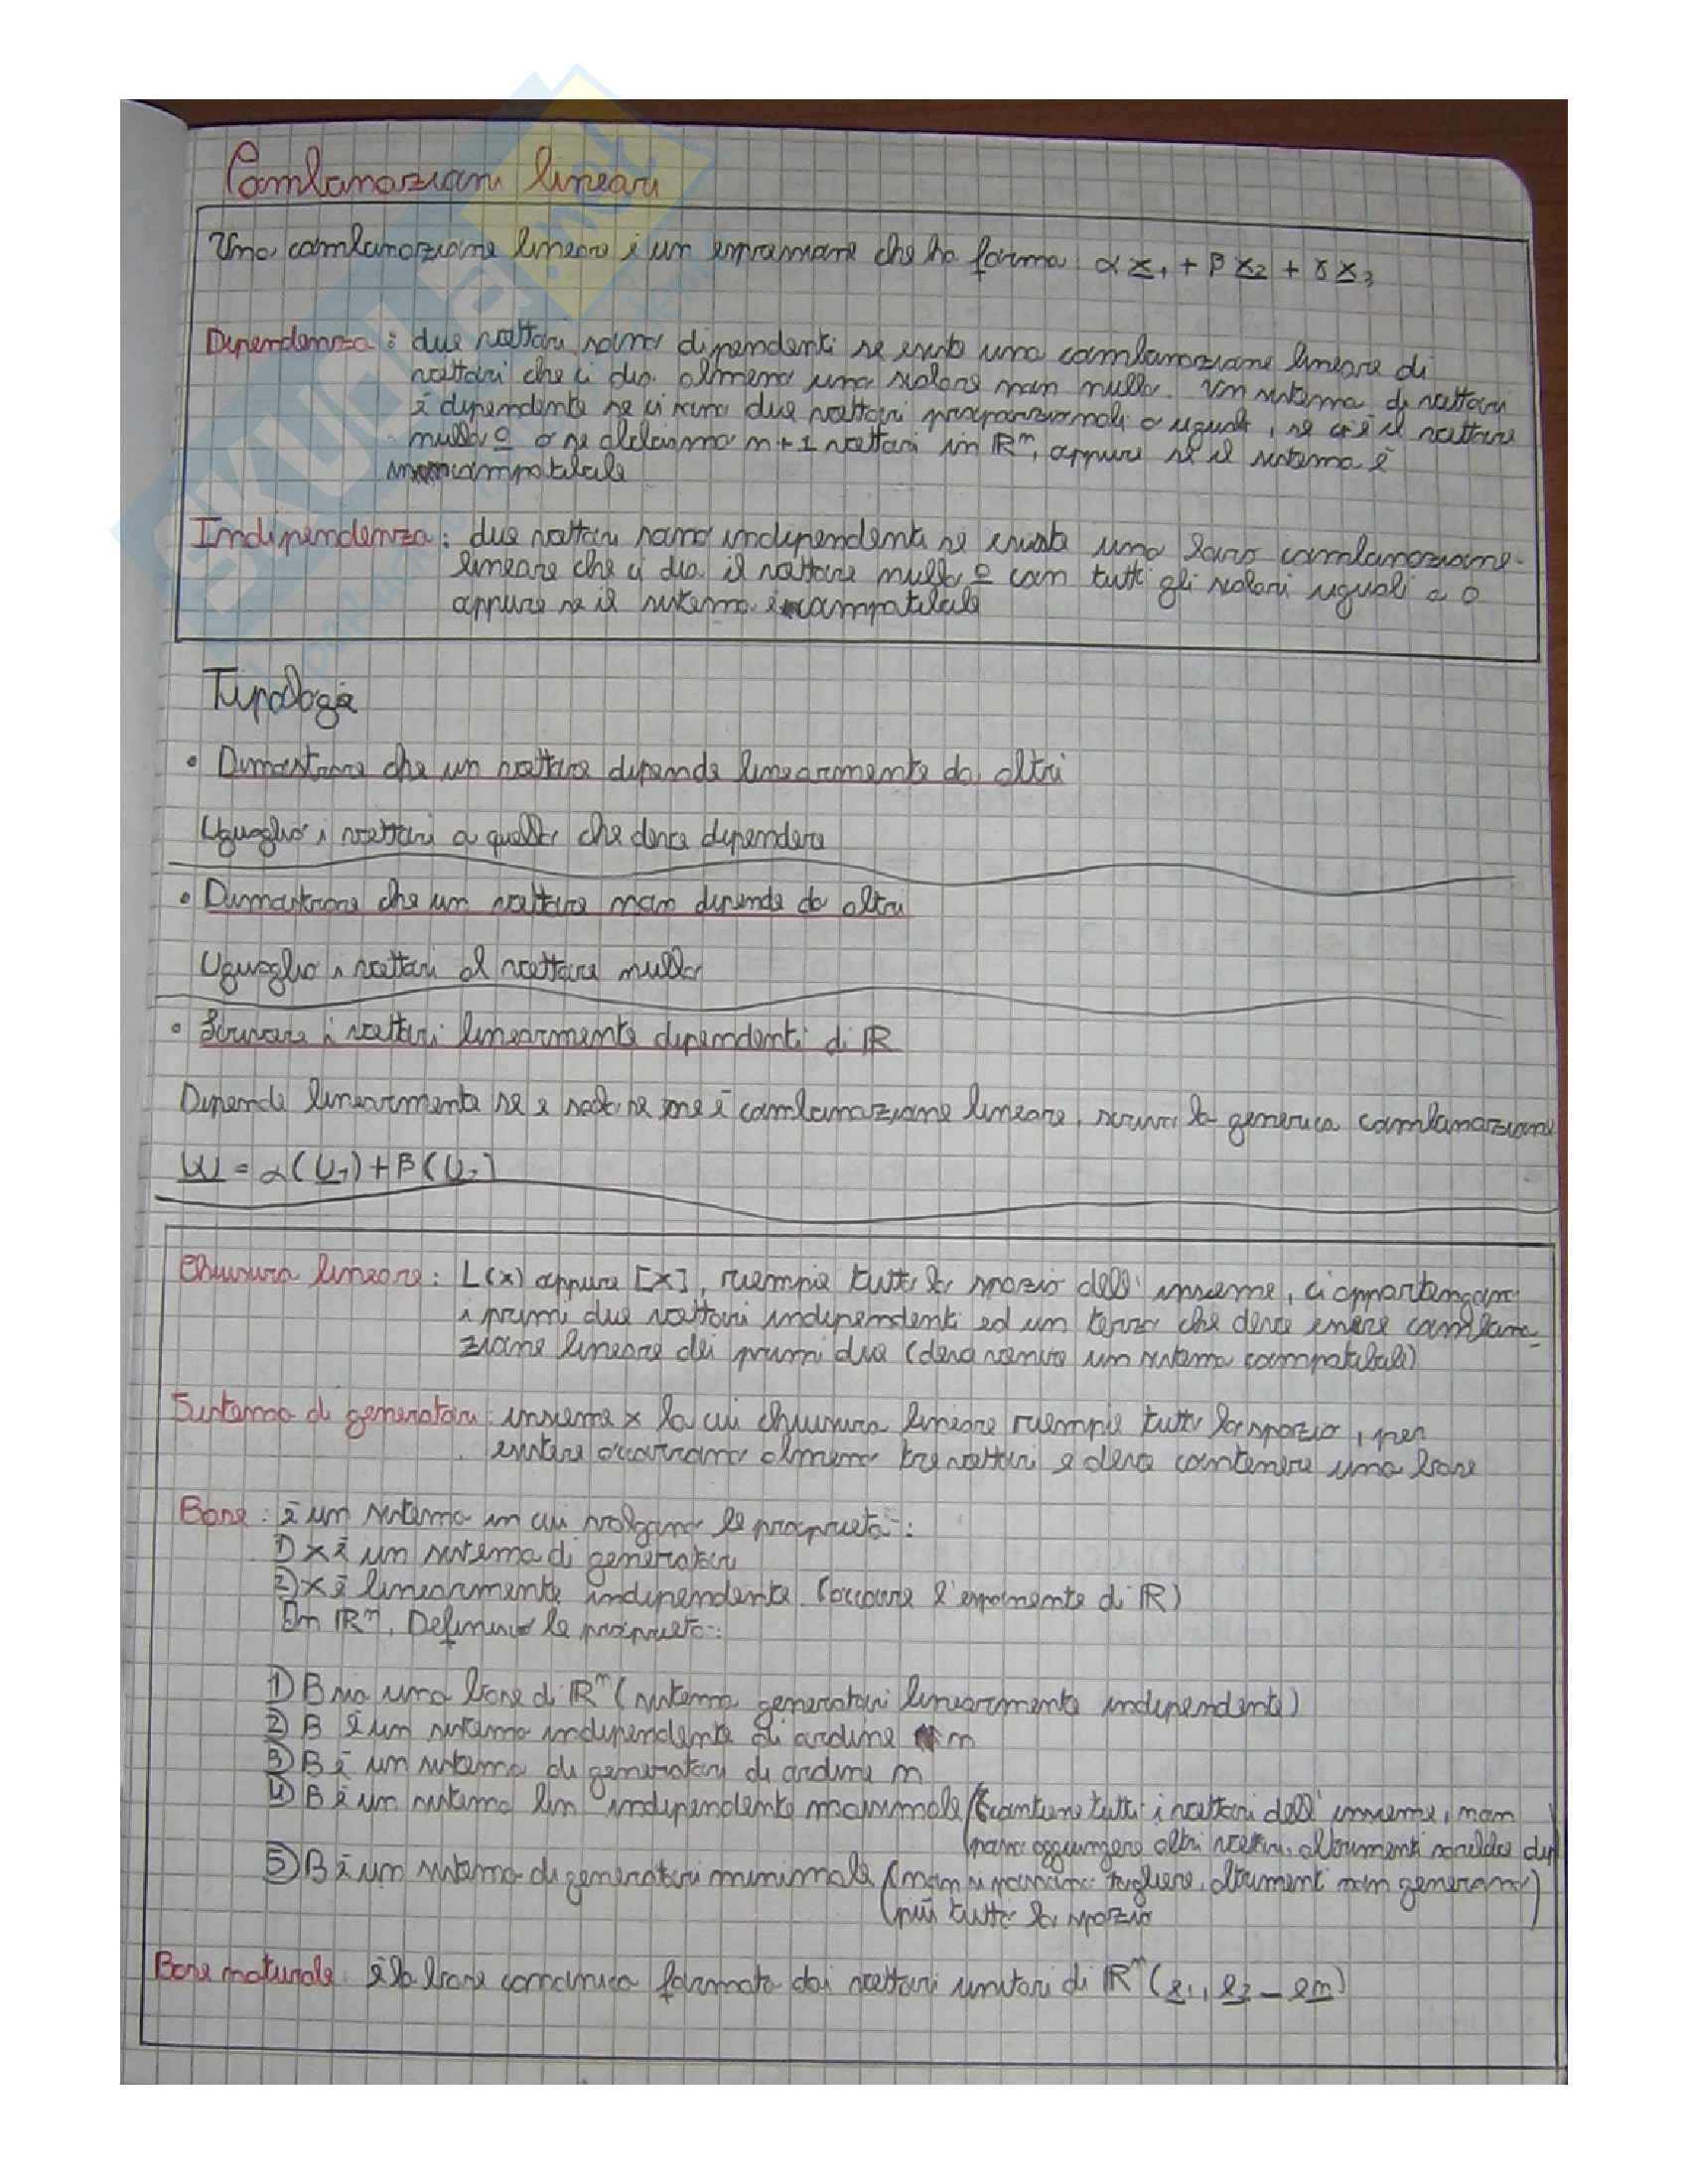 Combinazioni lineari
Una combinazione lineare è un espressione che ha forma: α x1 + β x2 + γ x3
Dipendenza: due vettori sono dipendenti se esiste una combinazione lineare di
vettori che ci dia almeno uno scalare non nullo. Un sistema di vettori
è dipendente se ci sono due vettori proporzionali o uguali, se c'è il vettore
nullo 0 o se abbiamo n+1 vettori in ℝⁿ, oppure se il sistema è
incompatibile
Indipendenza: due vettori sono indipendenti se esiste una loro combinazione
lineare che ci dia il vettore nullo 0 con tutti gli scalari uguali a 0
oppure se il sistema è compatibile
Tipologie
• Dimostrare che un vettore dipende linearmente da altri
Uguaglio i vettori a quello che deve dipendere
• Dimostrare che un vettore non dipende da altri
Uguaglio i vettori al vettore nullo
• Scrivere i vettori linearmente dipendenti di ℝ
Dipende linearmente se e solo se ne è combinazione lineare, scrivi la generica combinazione
W = α(U1) + β(U2)
Chiusura lineare: L(x) oppure [X], riempie tutto lo spazio dell'insieme, ci appartengono
i primi due vettori indipendenti ed un terzo che deve essere combina
zione lineare dei primi due (deve venire un sistema compatibile)
Sistema di generatori: insieme x la cui chiusura lineare riempie tutto lo spazio, per
esistere occorrono almeno tre vettori e deve contenere una base
Base: è un sistema in cui valgono le proprietà:
1) X è un sistema di generatori
2) X è linearmente indipendente (occorre l'esponente di ℝ)
In ℝⁿ. Definisco le proprietà:
1) B sia una base di ℝⁿ (sistema generatori linearmente indipendente)
2) B è un sistema indipendente di ordine n
3) B è un sistema di generatori di ordine n
4) B è un sistema lin indipendente massimale (contiene tutti i vettori dell'insieme, non
posso aggiungere altri vettori altrimenti sarebbe dip)
5) B è un sistema di generatori minimale (non si possono togliere, altrimenti non generano)
(più tutto lo spazio
Base naturale: è la base canonica formata dai vettori unitari di ℝⁿ (e1, e2 – en)
SKUOLA.net